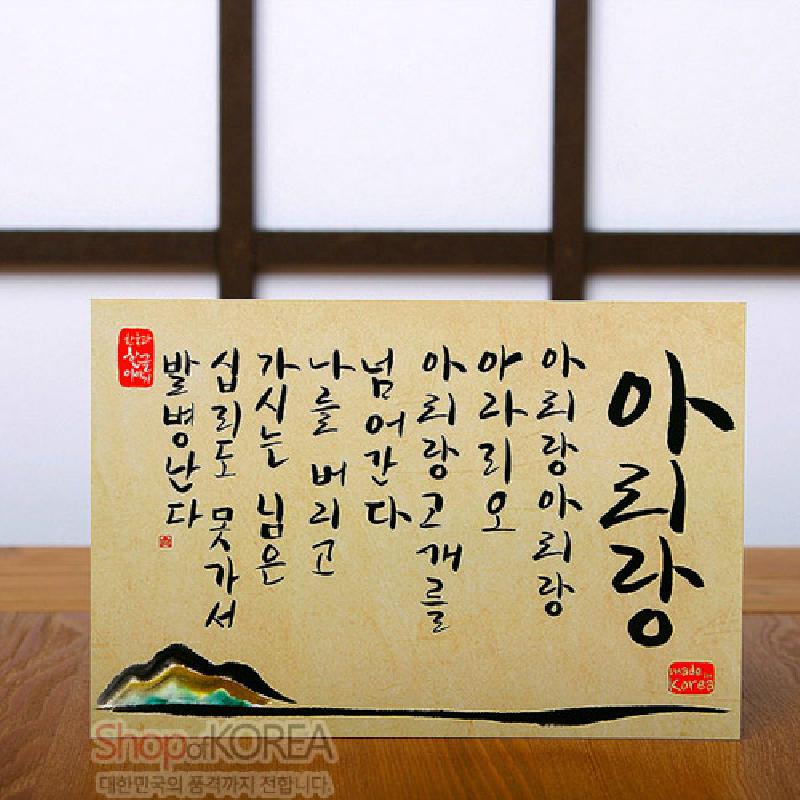 아리랑
아리랑아리랑
아라리오
아리랑고개를
넘어간다
나를 버리고
가시는 님은
십리도 못가서
발병난다
한글
이야기
made in
Korea
ShopofKOREA
대한민국의 품격까지 전합니다.